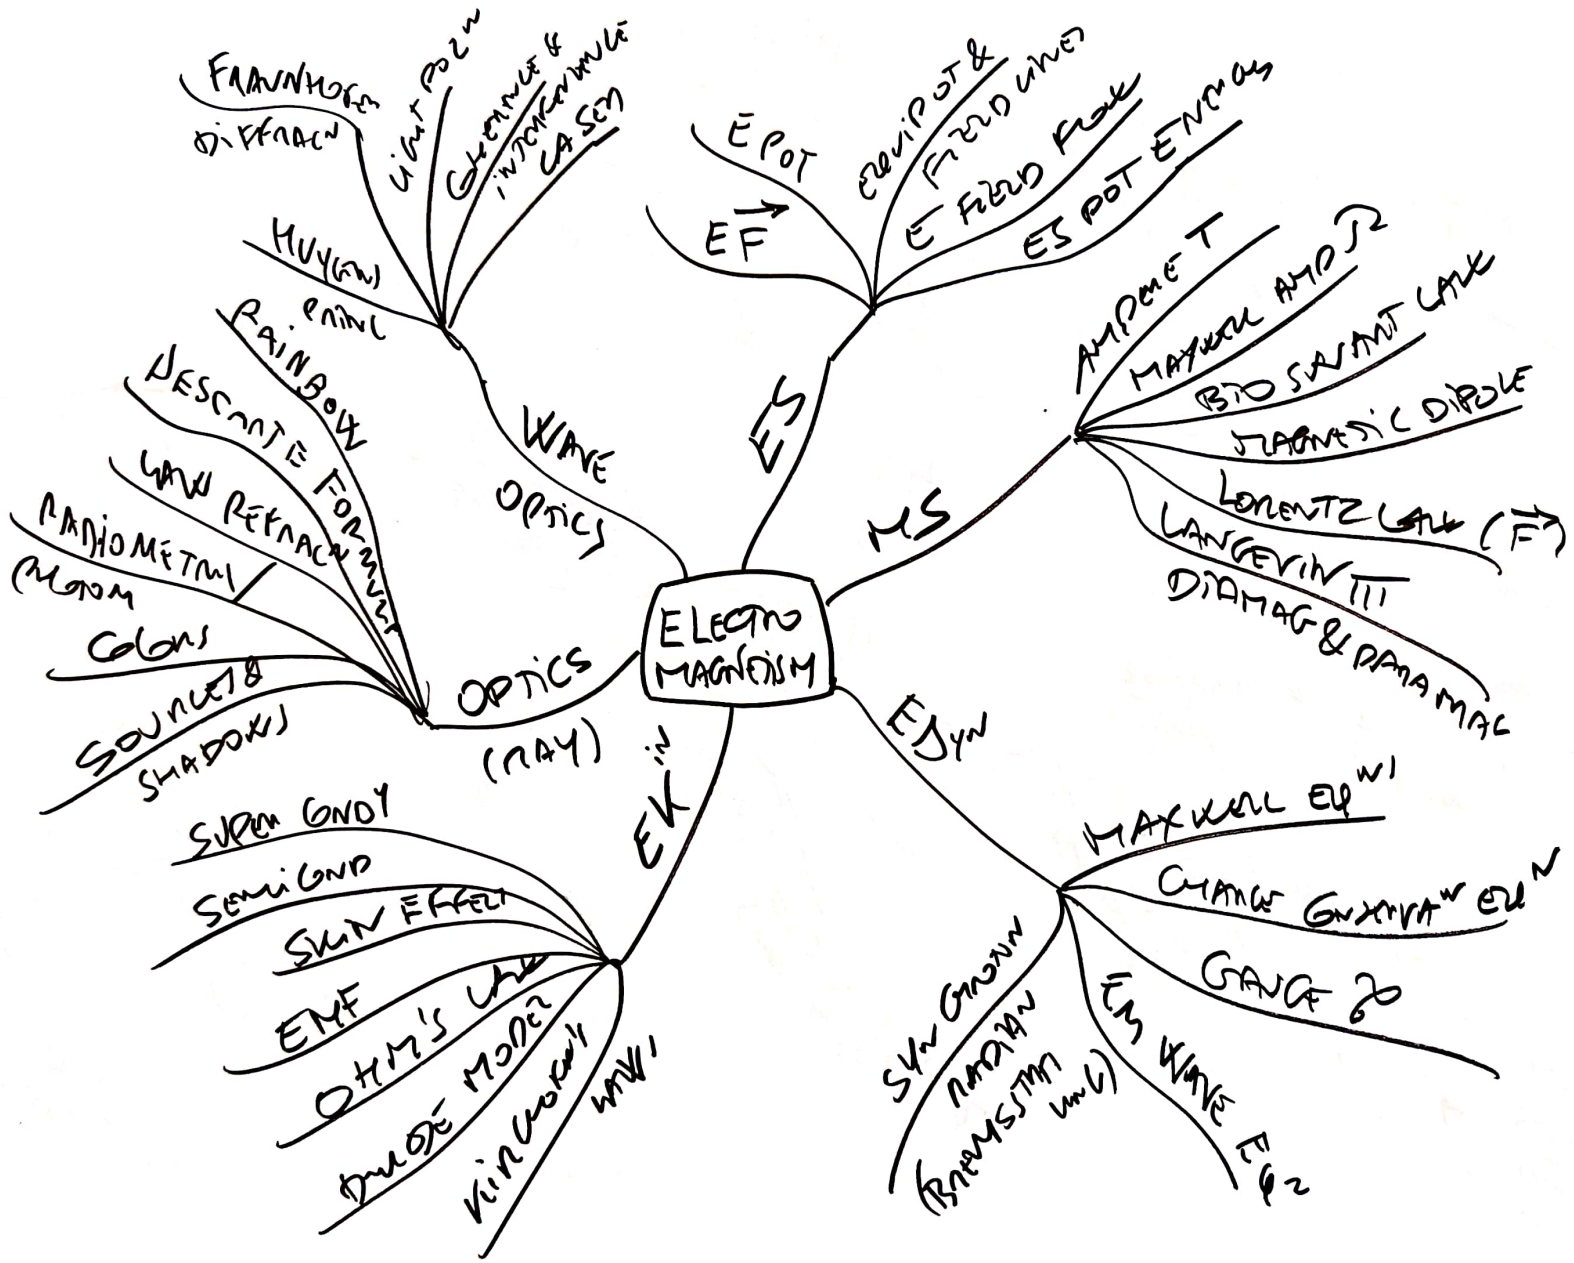 ELECTRO
MAGNETISM
ES
E POT
EF
EQUIPOT &
FIELD LINES
E FIELD FLOW
ES POT ENERGY
MS
AMPERE T
MAXWELL AMP Ω
BIO SAVART LAW
MAGNETIC DIPOLE
LORENTZ LAW (F)
LANGEVIN
DIAMAG & PARAMAG
EDYN
MAXWELL EQNS
CHARGE CONSERVAN EQN
GAUGE
EM WAVE EQ
SYNCHROTN
RADIAN
EKIN
SUPER CNDY
SEMICOND
SKIN EFFECT
EMF
OHM'S LAW
DRUDE MODEL
KIRCHHOFF'S
LAWS
OPTICS
(RAY)
RAINBOW
DESCARTE FORMULA
LAW REFRACN
RADIOMETRY
COLORS
SOURCES &
SHADOWS
WAVE
OPTICS
FRAUNHOFER
DIFFRACN
LIGHT POLN
COHERENCE &
INTERFERENCE
LASER
HUYGENS
PRINC